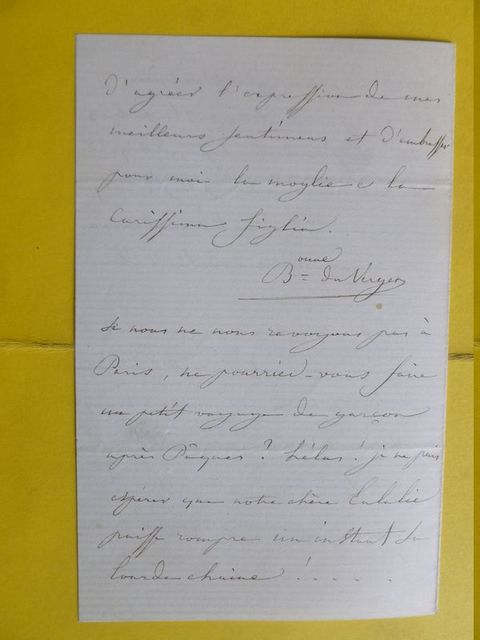 d'agréer l'expression de mes
meilleurs sentimens et d'embrasser
pour moi la moglie e la
carissima figlia.
Bonne du Verger
Si nous ne nous revoyons pas à
Paris, ne pourriez-vous faire
un petit voyage de garçon
après Pâques ? hélas ! je ne puis
espérer que notre chère Eulalie
puisse rompre un instant sa
lourde chaine ! . . . . .